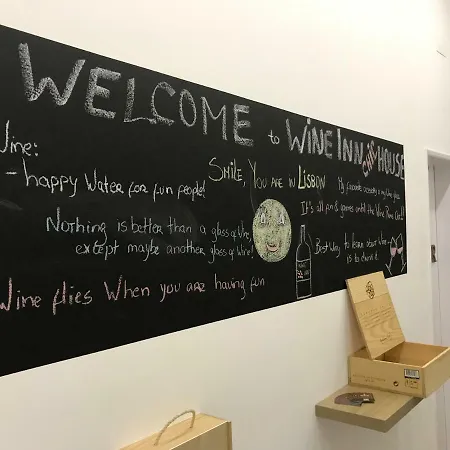 WELCOME to WINE INN HOUSE
Wine:
- happy Water for fun people!
SMILE, YOU ARE IN LISBON
My favorite accessory is my wine glass
Nothing is better than a glass of wine,
except maybe another glass of wine!
It's all fun & games until the Wine Runs Out!
Best Way to learn about wine
is to drink it.
Wine flies When you are having fun